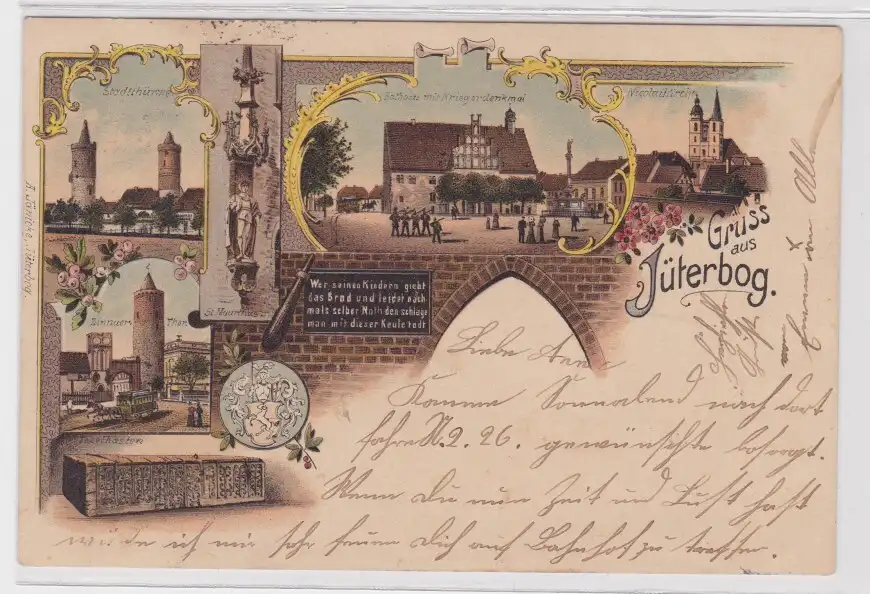 Stadtthürme
Rathaus mit Kriegerdenkmal
Nicolaikirche
Gruss
aus
Jüterbog.
St. Mauritius
Wer seinen Kindern giebt
das Brod und leidet nach-
mals selber Noth den schlage
man mit dieser Keule todt
Zinnaer Thor
Tezelkasten
Liebe
Komme Sonnabend nach dort
fahre N. 2.26. gewünschte besorgt.
Wenn Du nun Zeit und Lust hast
würde ich mir sehr freuen Dich auf Bahnhof zu treffen.